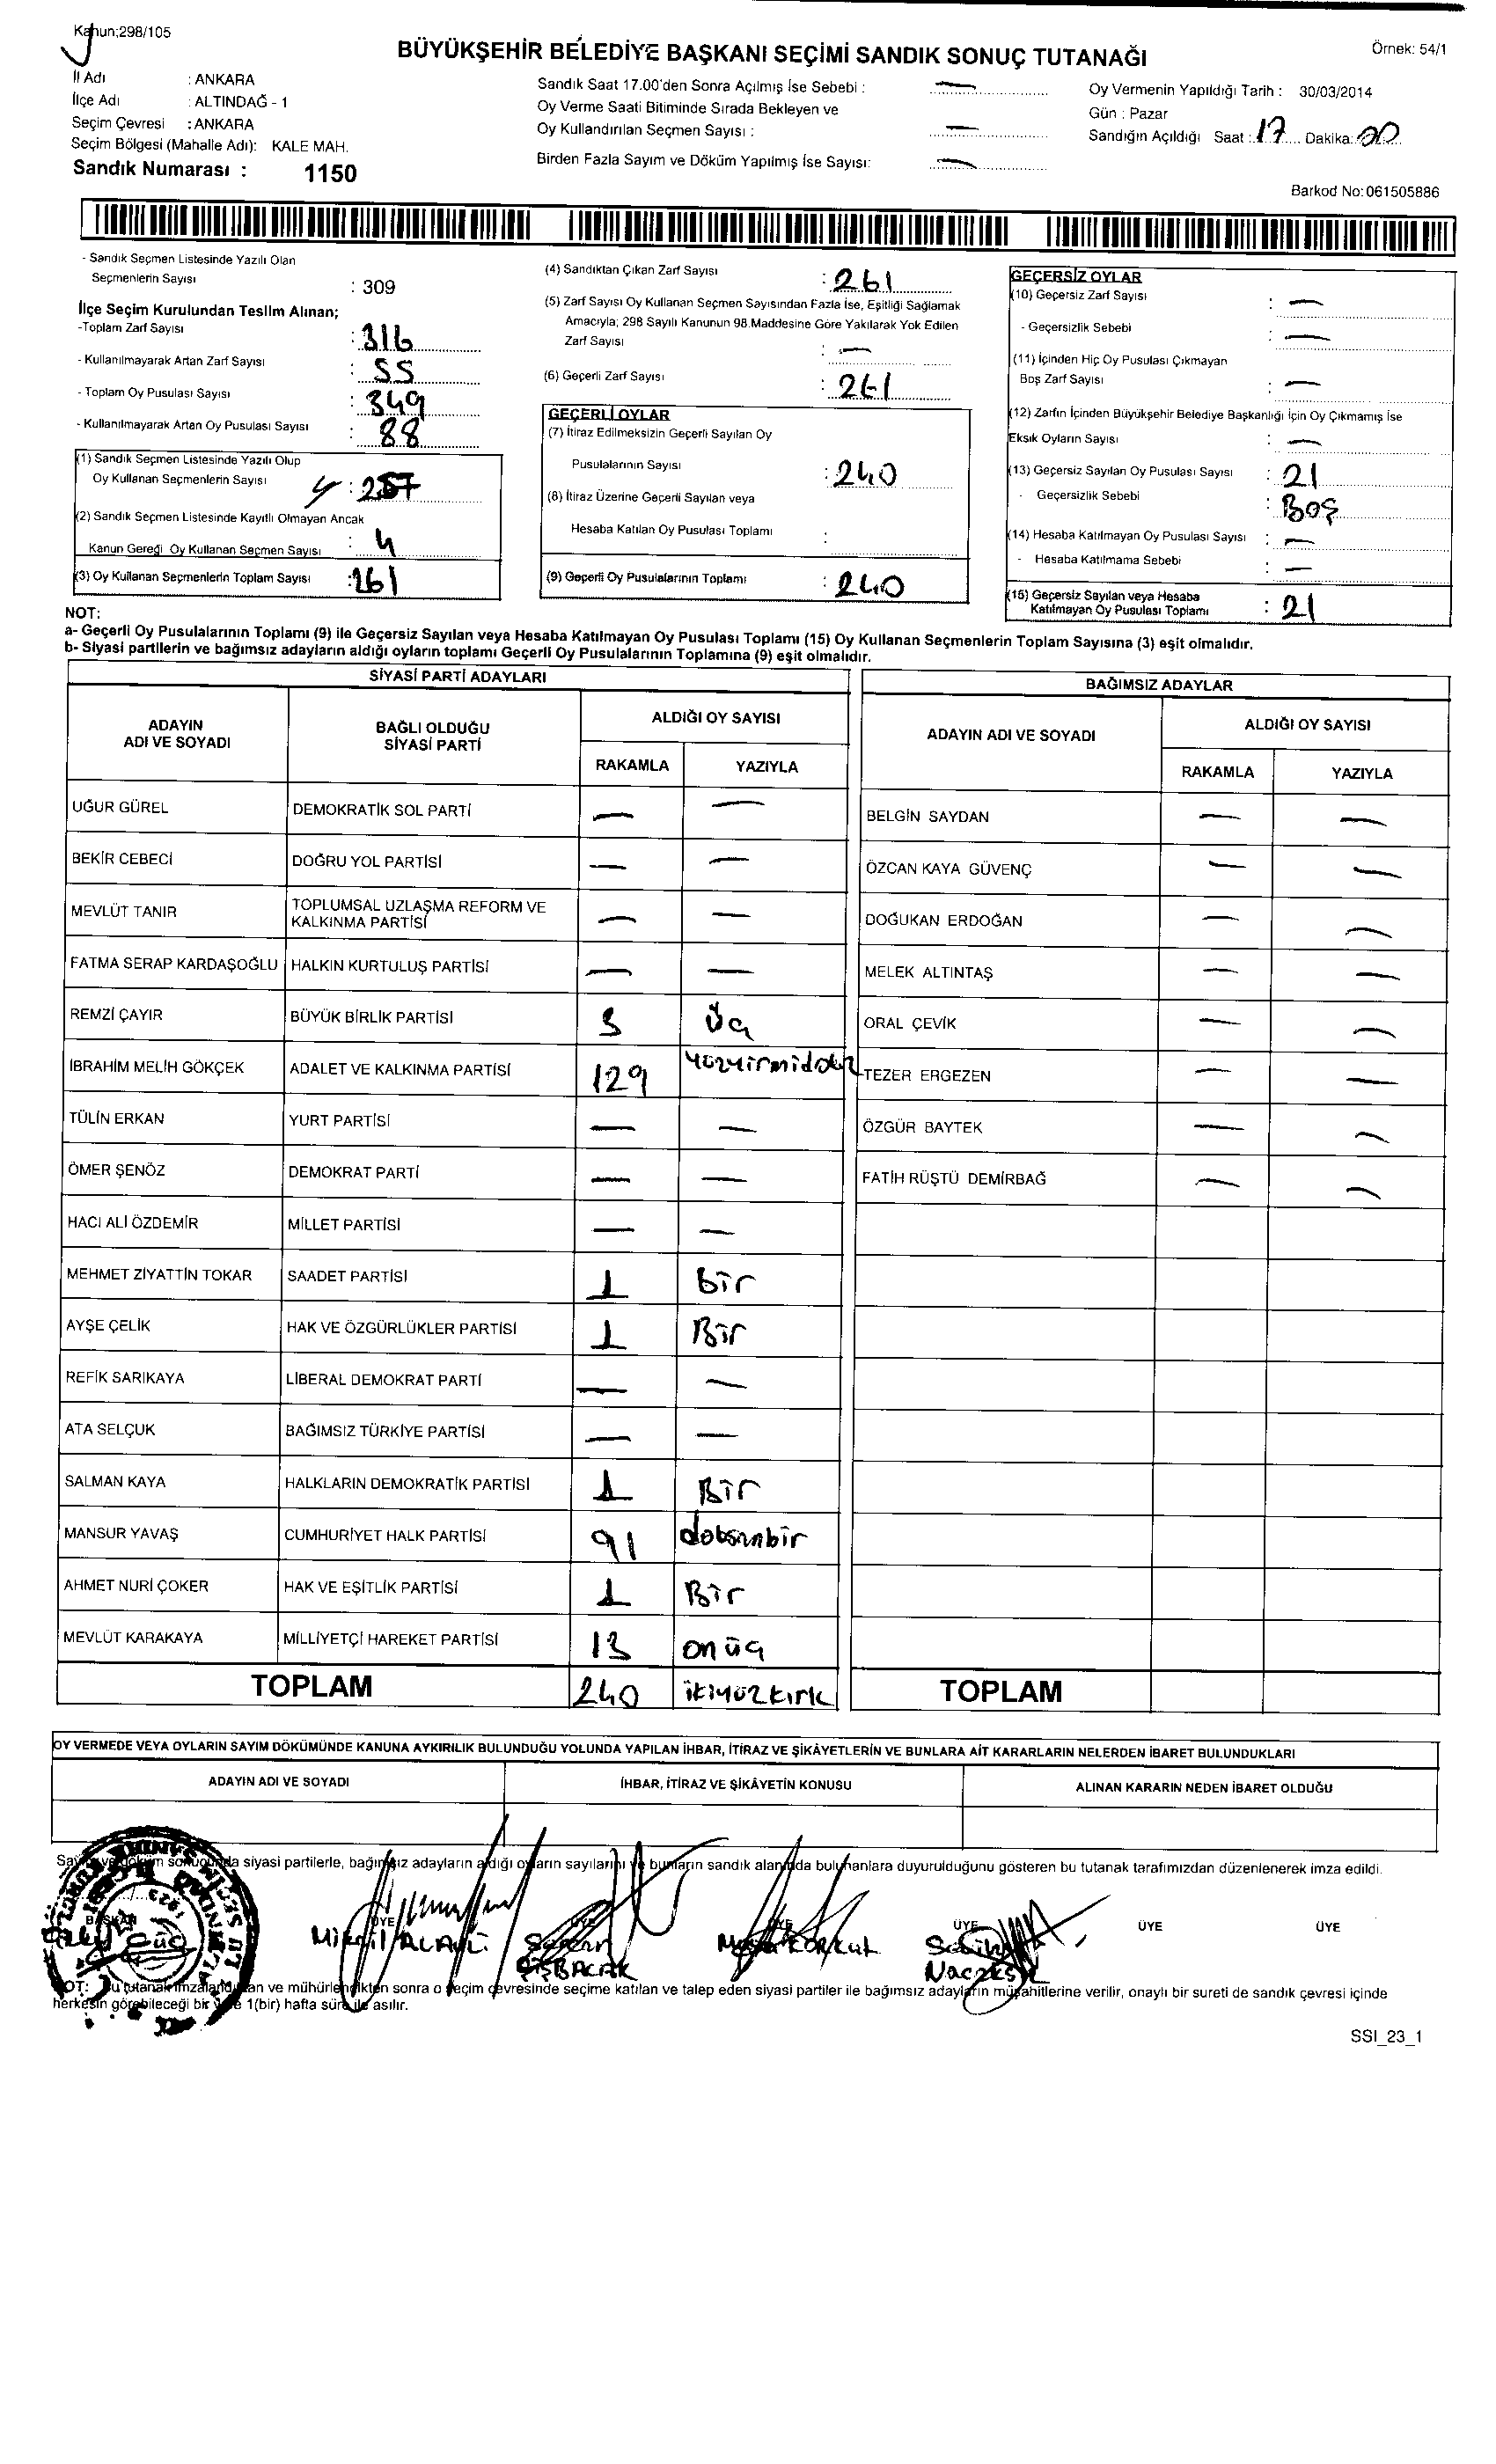 Kanun;298/105
BÜYÜKŞEHİR BELEDİYE BAŞKANI SEÇİMİ SANDIK SONUÇ TUTANAĞI
Örnek: 54/1
İl Adı : ANKARA
İlçe Adı : ALTINDAĞ - 1
Seçim Çevresi : ANKARA
Seçim Bölgesi (Mahalle Adı): KALE MAH.
Sandık Numarası : 1150
Sandık Saat 17.00'den Sonra Açılmış İse Sebebi : —
Oy Verme Saati Bitiminde Sırada Bekleyen ve
Oy Kullandırılan Seçmen Sayısı : —
Birden Fazla Sayım ve Döküm Yapılmış İse Sayısı: —
Oy Vermenin Yapıldığı Tarih : 30/03/2014
Gün : Pazar
Sandığın Açıldığı Saat : 17 Dakika: 00
Barkod No: 061505886
- Sandık Seçmen Listesinde Yazılı Olan
Seçmenlerin Sayısı : 309
İlçe Seçim Kurulundan Teslim Alınan;
-Toplam Zarf Sayısı : 316
- Kullanılmayarak Artan Zarf Sayısı : 55
- Toplam Oy Pusulası Sayısı : 349
- Kullanılmayarak Artan Oy Pusulası Sayısı : 88
(1) Sandık Seçmen Listesinde Yazılı Olup
Oy Kullanan Seçmenlerin Sayısı : 257
(2) Sandık Seçmen Listesinde Kayıtlı Olmayan Ancak
Kanun Gereği Oy Kullanan Seçmen Sayısı : 4
(3) Oy Kullanan Seçmenlerin Toplam Sayısı : 261
(4) Sandıktan Çıkan Zarf Sayısı : 261
(5) Zarf Sayısı Oy Kullanan Seçmen Sayısından Fazla İse, Eşitliği Sağlamak
Amacıyla; 298 Sayılı Kanunun 98.Maddesine Göre Yakılarak Yok Edilen
Zarf Sayısı : —
(6) Geçerli Zarf Sayısı : 261
GEÇERLİ OYLAR
(7) İtiraz Edilmeksizin Geçerli Sayılan Oy
Pusulalarının Sayısı : 240
(8) İtiraz Üzerine Geçerli Sayılan veya
Hesaba Katılan Oy Pusulası Toplamı :
(9) Geçerli Oy Pusulalarının Toplamı : 240
GEÇERSİZ OYLAR
(10) Geçersiz Zarf Sayısı : —
- Geçersizlik Sebebi : —
(11) İçinden Hiç Oy Pusulası Çıkmayan
Boş Zarf Sayısı : —
(12) Zarfın İçinden Büyükşehir Belediye Başkanlığı İçin Oy Çıkmamış İse
Eksik Oyların Sayısı : —
(13) Geçersiz Sayılan Oy Pusulası Sayısı : 21
- Geçersizlik Sebebi : Boş
(14) Hesaba Katılmayan Oy Pusulası Sayısı : —
- Hesaba Katılmama Sebebi : —
(15) Geçersiz Sayılan veya Hesaba
Katılmayan Oy Pusulası Toplamı : 21
NOT:
a- Geçerli Oy Pusulalarının Toplamı (9) ile Geçersiz Sayılan veya Hesaba Katılmayan Oy Pusulası Toplamı (15) Oy Kullanan Seçmenlerin Toplam Sayısına (3) eşit olmalıdır.
b- Siyasi partilerin ve bağımsız adayların aldığı oyların toplamı Geçerli Oy Pusulalarının Toplamına (9) eşit olmalıdır.
SİYASİ PARTİ ADAYLARI
ADAYIN ADI VE SOYADI
BAĞLI OLDUĞU SİYASİ PARTİ
ALDIĞI OY SAYISI
RAKAMLA YAZIYLA
UĞUR GÜREL DEMOKRATİK SOL PARTİ — —
BEKİR CEBECİ DOĞRU YOL PARTİSİ — —
MEVLÜT TANIR TOPLUMSAL UZLAŞMA REFORM VE
KALKINMA PARTİSİ — —
FATMA SERAP KARDAŞOĞLU HALKIN KURTULUŞ PARTİSİ — —
REMZİ ÇAYIR BÜYÜK BİRLİK PARTİSİ 3 Üç
İBRAHİM MELİH GÖKÇEK ADALET VE KALKINMA PARTİSİ 129
TÜLİN ERKAN YURT PARTİSİ — —
ÖMER ŞENÖZ DEMOKRAT PARTİ — —
HACI ALİ ÖZDEMİR MİLLET PARTİSİ — —
MEHMET ZİYATTİN TOKAR SAADET PARTİSİ 1 Bir
AYŞE ÇELİK HAK VE ÖZGÜRLÜKLER PARTİSİ 1 Bir
REFİK SARIKAYA LİBERAL DEMOKRAT PARTİ — —
ATA SELÇUK BAĞIMSIZ TÜRKİYE PARTİSİ — —
SALMAN KAYA HALKLARIN DEMOKRATİK PARTİSİ 1 Bir
MANSUR YAVAŞ CUMHURİYET HALK PARTİSİ 91 doksanbir
AHMET NURİ ÇOKER HAK VE EŞİTLİK PARTİSİ 1 Bir
MEVLÜT KARAKAYA MİLLİYETÇİ HAREKET PARTİSİ 13 onüç
TOPLAM 240 ikiyüzkırk
BAĞIMSIZ ADAYLAR
ADAYIN ADI VE SOYADI
ALDIĞI OY SAYISI
RAKAMLA YAZIYLA
BELGİN SAYDAN — —
ÖZCAN KAYA GÜVENÇ — —
DOĞUKAN ERDOĞAN — —
MELEK ALTINTAŞ — —
ORAL ÇEVİK — —
TEZER ERGEZEN — —
ÖZGÜR BAYTEK — —
FATİH RÜŞTÜ DEMİRBAĞ — —
TOPLAM
OY VERMEDE VEYA OYLARIN SAYIM DÖKÜMÜNDE KANUNA AYKIRILIK BULUNDUĞU YOLUNDA YAPILAN İHBAR, İTİRAZ VE ŞİKÂYETLERİN VE BUNLARA AİT KARARLARIN NELERDEN İBARET BULUNDUKLARI
ADAYIN ADI VE SOYADI
İHBAR, İTİRAZ VE ŞİKÂYETİN KONUSU
ALINAN KARARIN NEDEN İBARET OLDUĞU
Sayım ve döküm sonucunda siyasi partilerle, bağımsız adayların aldığı oyların sayılarını ve bunların sandık alanında bulunanlara duyurulduğunu gösteren bu tutanak tarafımızdan düzenlenerek imza edildi.
BAŞKAN ÜYE ÜYE ÜYE ÜYE ÜYE ÜYE
NOT: Bu tutanak imzalandıktan ve mühürlendikten sonra o seçim çevresinde seçime katılan ve talep eden siyasi partiler ile bağımsız adayların müşahitlerine verilir, onaylı bir sureti de sandık çevresi içinde
herkesin görebileceği bir yere 1(bir) hafta süre ile asılır.
SSI_23_1